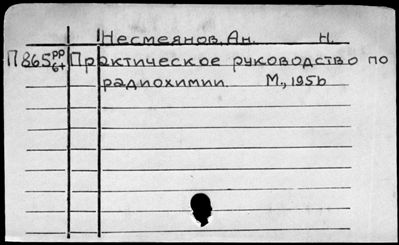 Несмеянов, Ан. Н.
П865 рр 6+ Практическое руководство по
радиохимии. М., 1956